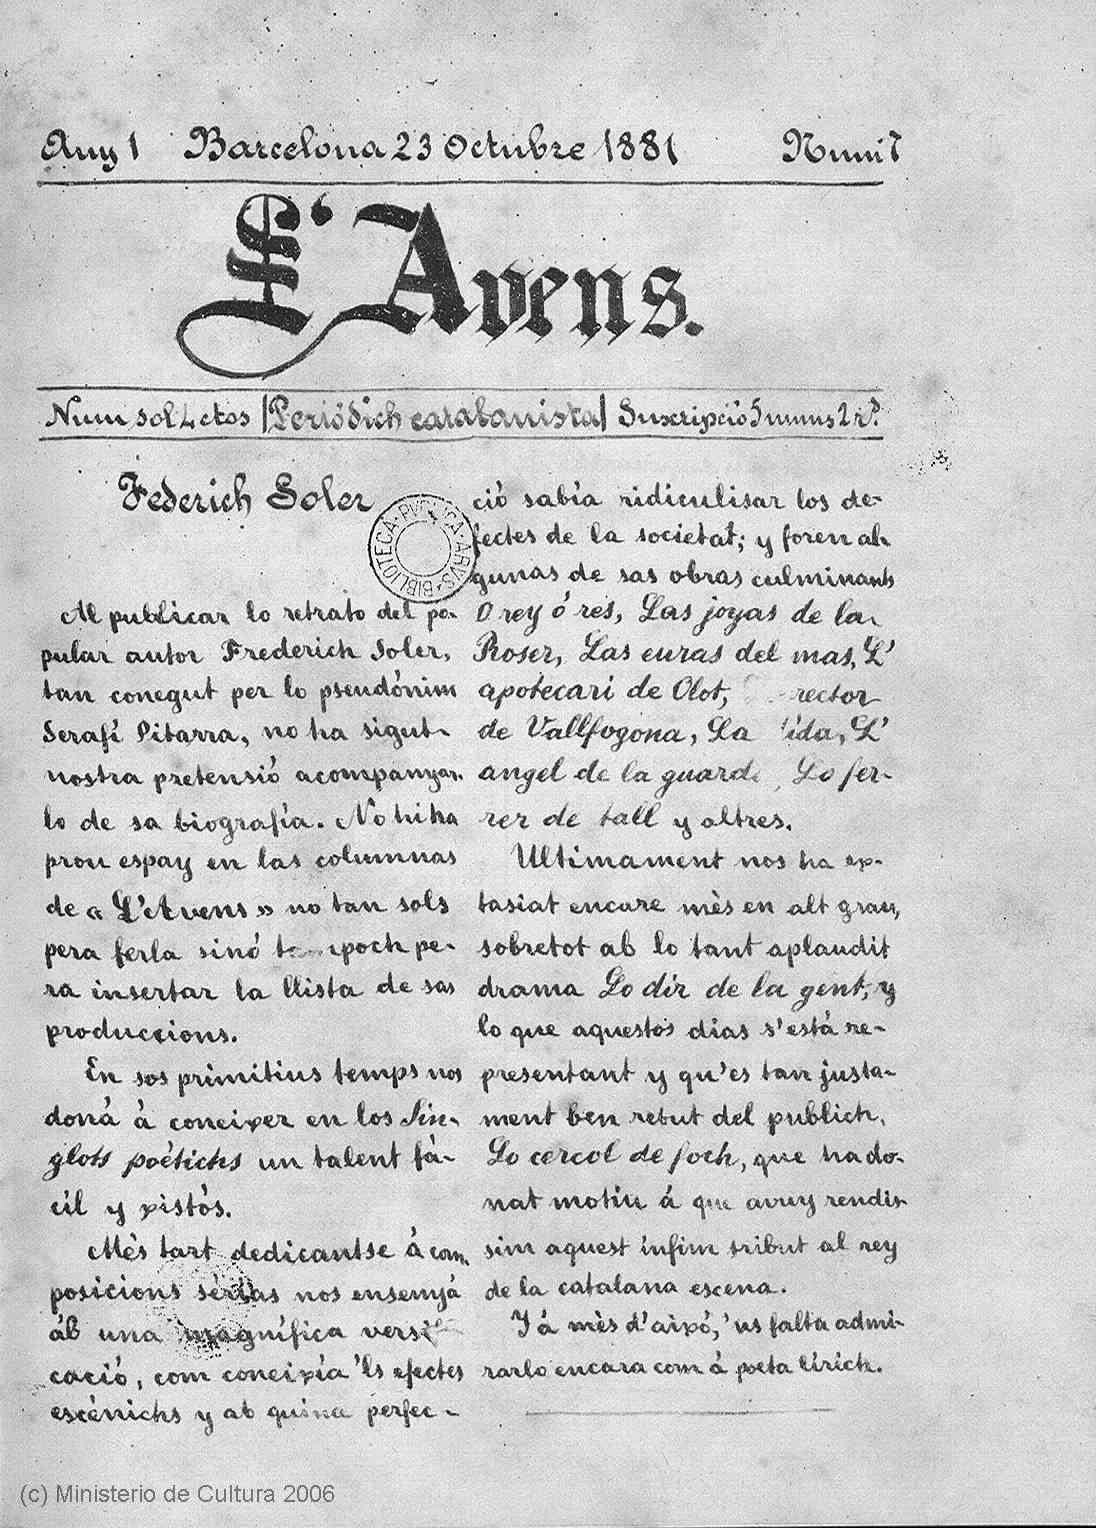 Any 1 Barcelona 23 Octubre 1881 Num 7
L'Avens.
Num sol 4 ctos | Periódich catalanista | Suscripció 5 nums 2 r.
Federich Soler
BIBLIOTECA · PUBLICA · ARUS ·
Al publicar lo retrato del po-
pular autor Frederich Soler,
tan conegut per lo pseudónim
Serafí Pitarra, no ha sigut
nostra pretensió acompanyar-
lo de sa biografía. No hi ha
prou espay en las columnas
de « L'Avens » no tan sols
pera ferla sinó tampoch pe-
ra insertar la llista de sas
produccions.
En sos primitius temps nos
doná á coneixer en los Sin-
glots poétichs un talent fá-
cil y xistós.
Més tart dedicantse á com-
posicions sérias nos ensenyá
ab una magnífica versifi-
cació, com coneixía 'ls efectes
escénichs y ab quina perfec-
ció sabía ridiculisar los de-
fectes de la societat; y foren al-
gunas de sas obras culminants
O rey ó res, Las joyas de la
Roser, Las euras del mas, L'
apotecari de Olot, rector
de Vallfogona, La dida, L'
angel de la guarda, Lo fer-
rer de tall y altres.
Ultimament nos ha ex-
tasiat encare mès en alt grau,
sobretot ab lo tant aplaudit
drama Lo dir de la gent, y
lo que aquestos dias s'está re-
presentant y qu'es tan justa-
ment ben rebut del publich,
Lo cercol de foch, que ha do-
nat motiu á que avuy rendis-
sim aquest ínfim tribut al rey
de la catalana escena.
Y á mès d'aixó, 'us falta admi-
rarlo encara com á poeta lírich.
(c) Ministerio de Cultura 2006